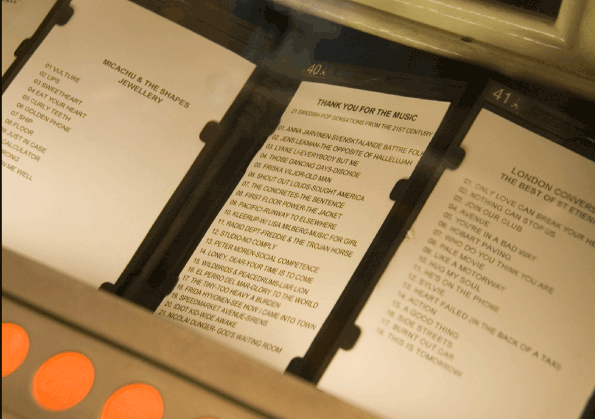 MICACHU & THE SHAPES
JEWELLERY
01 VULTURE
02 LIPS
03 SWEETHEART
04 EAT YOUR HEART
05 CURLY TEETH
06 GOLDEN PHONE
07 SHIP
08 FLOOR
09 JUST IN CASE
CALCULATOR
WRONG
N ME WELL
40
THANK YOU FOR THE MUSIC
21 SWEDISH POP SENSATIONS FROM THE 21ST CENTURY
01. ANNA JARVINEN-SVENSKTALANDE BATTRE FOLK
02. JENS LEKMAN-THE OPPOSITE OF HALLELUJAH
03. LYKKE LI-EVERYBODY BUT ME
04. THOSE DANCING DAYS-DISCHOE
05. FRISKA VILJOR-OLD MAN
06. SHOUT OUT LOUDS-SOUGHT AMERICA
07. THE CONCRETES-THE SENTENCE
08. FIRST FLOOR POWER-THE JACKET
09. PACIFIC!-RUNWAY TO ELSEWHERE
10. KLEERUP-W/ LISA MILBERG-MUSIC FOR GIRL
11. RADIO DEPT-FREDDIE & THE TROJAN HORSE
12. STUDIO-NO COMPLY
13. PETER MOREN-SOCIAL COMPETENCE
14. LONEY, DEAR-YOUR TIME IS TO COME
15. WILDBIRDS & PEACEDRUMS-LIAR LION
16. EL PERRO DEL MAR GLORY TO THE WORLD
17. THE TINY-TOO HEAVY A BURDEN
18. FRIDA HYVONEN-SEE HOW I CAME INTO TOWN
19. SPEEDMARKET AVENUE-SIRENS
20. IDIOT KID-WIDE AWAKE
21. NICOLAI DUNGER- GOD'S WAITING ROOM
41
LONDON CONVERS
THE BEST OF ST ETIEN
01. ONLY LOVE CAN BREAK YOUR HE
02. NOTHING CAN STOP US
03. JOIN OUR CLUB
04. AVENUE
05. YOU'RE IN A BAD WAY
06. HOBART PAVING
07. WHO DO YOU THINK YOU ARE
08. PALE MOVIE
09. LIKE A MOTORWAY
10. HUG MY SOUL
11. HE'S ON THE PHONE
12. SYLVIE
13. HEART FAILED (IN THE BACK OF A TAXI)
14. ACTION
15. A GOOD THING
16. SIDE STREETS
17. BURNT OUT CAR
18. THIS IS TOMORROW